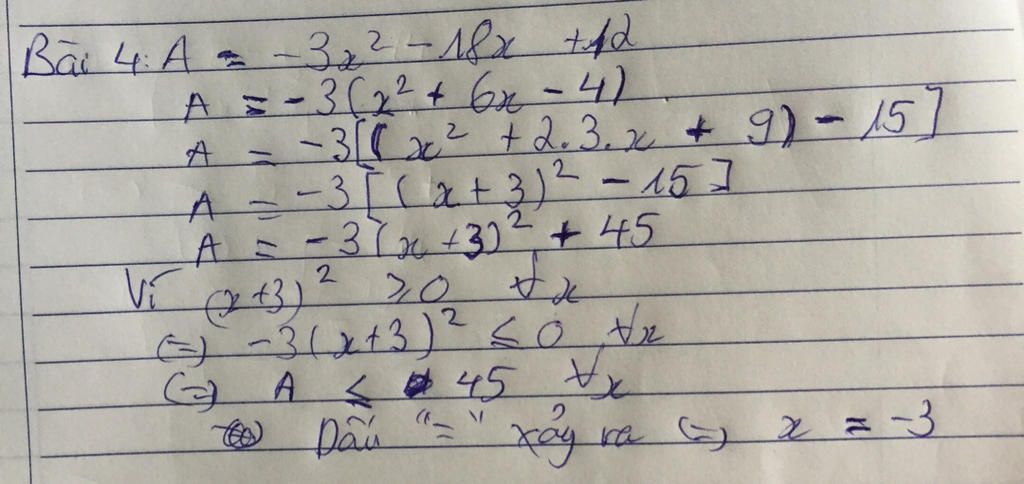 Bài 4: A = -3x² - 18x + 12
A = -3(x² + 6x - 4)
A = -3[(x² + 2.3.x + 9) - 15]
A = -3[(x+3)² - 15]
A = -3(x+3)² + 45
Vì (x+3)² ≥ 0 ∀x
(=) -3(x+3)² ≤ 0 ∀x
(=) A ≤ 45 ∀x
Dấu "=" xảy ra (=) x = -3